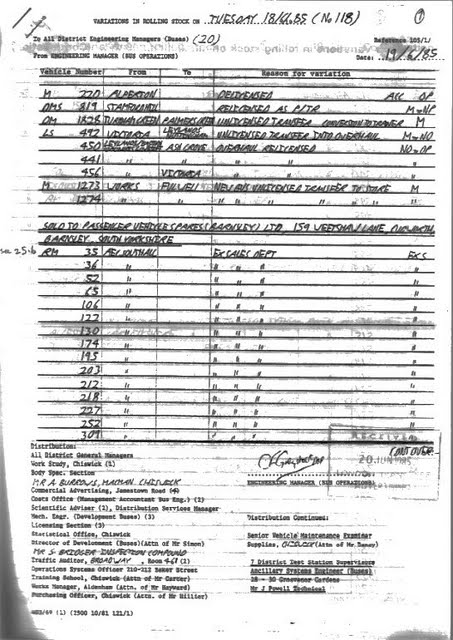 VARIATIONS IN ROLLING STOCK ON TUESDAY 18/6/85 (No 118) ①
To All District Engineering Managers (Buses) (20) Reference 105/1/
From ENGINEERING MANAGER (BUS OPERATIONS) Date: 19/6/85
Vehicle Number From To Reason for variation
M 220 ALPERTON DELICENSED ACC OP
DMS 819 STAMFORD HILL RELICENSED AS PLTR M-NP
DM 1828 TURNHAM GREEN PALMERS GREEN UNLICENSED TRANSFER CONVERSION TO TRAINER M
LS 492 VICTORIA LEYLANDS UNLICENSED TRANSFER INTO OVERHAUL M-NO
450 ASH GROVE OVERHAUL RELICENSED NO-OP
441 " " " "
456 " VICTORIA " " "
M 1273 WORKS FULWELL NEW BUS UNLICENSED TRANSFER TO STORE M
1274 " " " " "
SOLD TO PASSENGER VEHICLE SPARES (BARNSLEY) LTD, 159 WEETSHAW LANE, CUDWORTH
BARNSLEY, SOUTH YORKSHIRE
RM 35 AEC SOUTHALL EX SALES DEPT EXS
36 " " " " "
52 " " " " "
65 " " " " "
106 " " " " "
122 " " " " "
130 " " " " "
174 " " " " "
195 " " " " "
203 " " " " "
212 " " " " "
218 " " " " "
227 " " " " "
252 " " " " "
307 " " " " "
CONT OVER
Distribution:
All District General Managers
Work Study, Chiswick (1)
Body Spec. Section
MR A BURROWS, CHISWICK
Commercial Advertising, Jamestown Road (4)
Costs Office (Management Accountant Bus Eng.) (2)
Scientific Adviser (2), Distribution Services Manager
Mech. Engr. (Development Buses) (3)
Licensing Section (3)
Statistical Office, Chiswick
Director of Development (Buses)(Attn of Mr Simon)
MR S BRIDGER INSPECTION COMPOUND
Traffic Auditor, BROADWAY, Room 461 (2)
Operations Systems Officer 210-212 Baker Street
Training School, Chiswick (Attn of Mr Carter)
Works Manager, Aldenham (Attn of Mr Hayward)
Purchasing Officer, Chiswick (Attn. of Mr Hillier)
RECEIVED
20 JUN 1985
ENGINEERING MANAGER (BUS OPERATIONS)
Distribution Continues:
Senior Vehicle Maintenance Examiner
Supplies, CHISWICK (Attn of Mr Raney)
7 District Test Station Supervisors
Ancillary Systems Engineer (Buses)
18 - 30 Grosvenor Gardens
Mr J Powell Technical
MEB/69 (1) (2500 10/81 121/1)